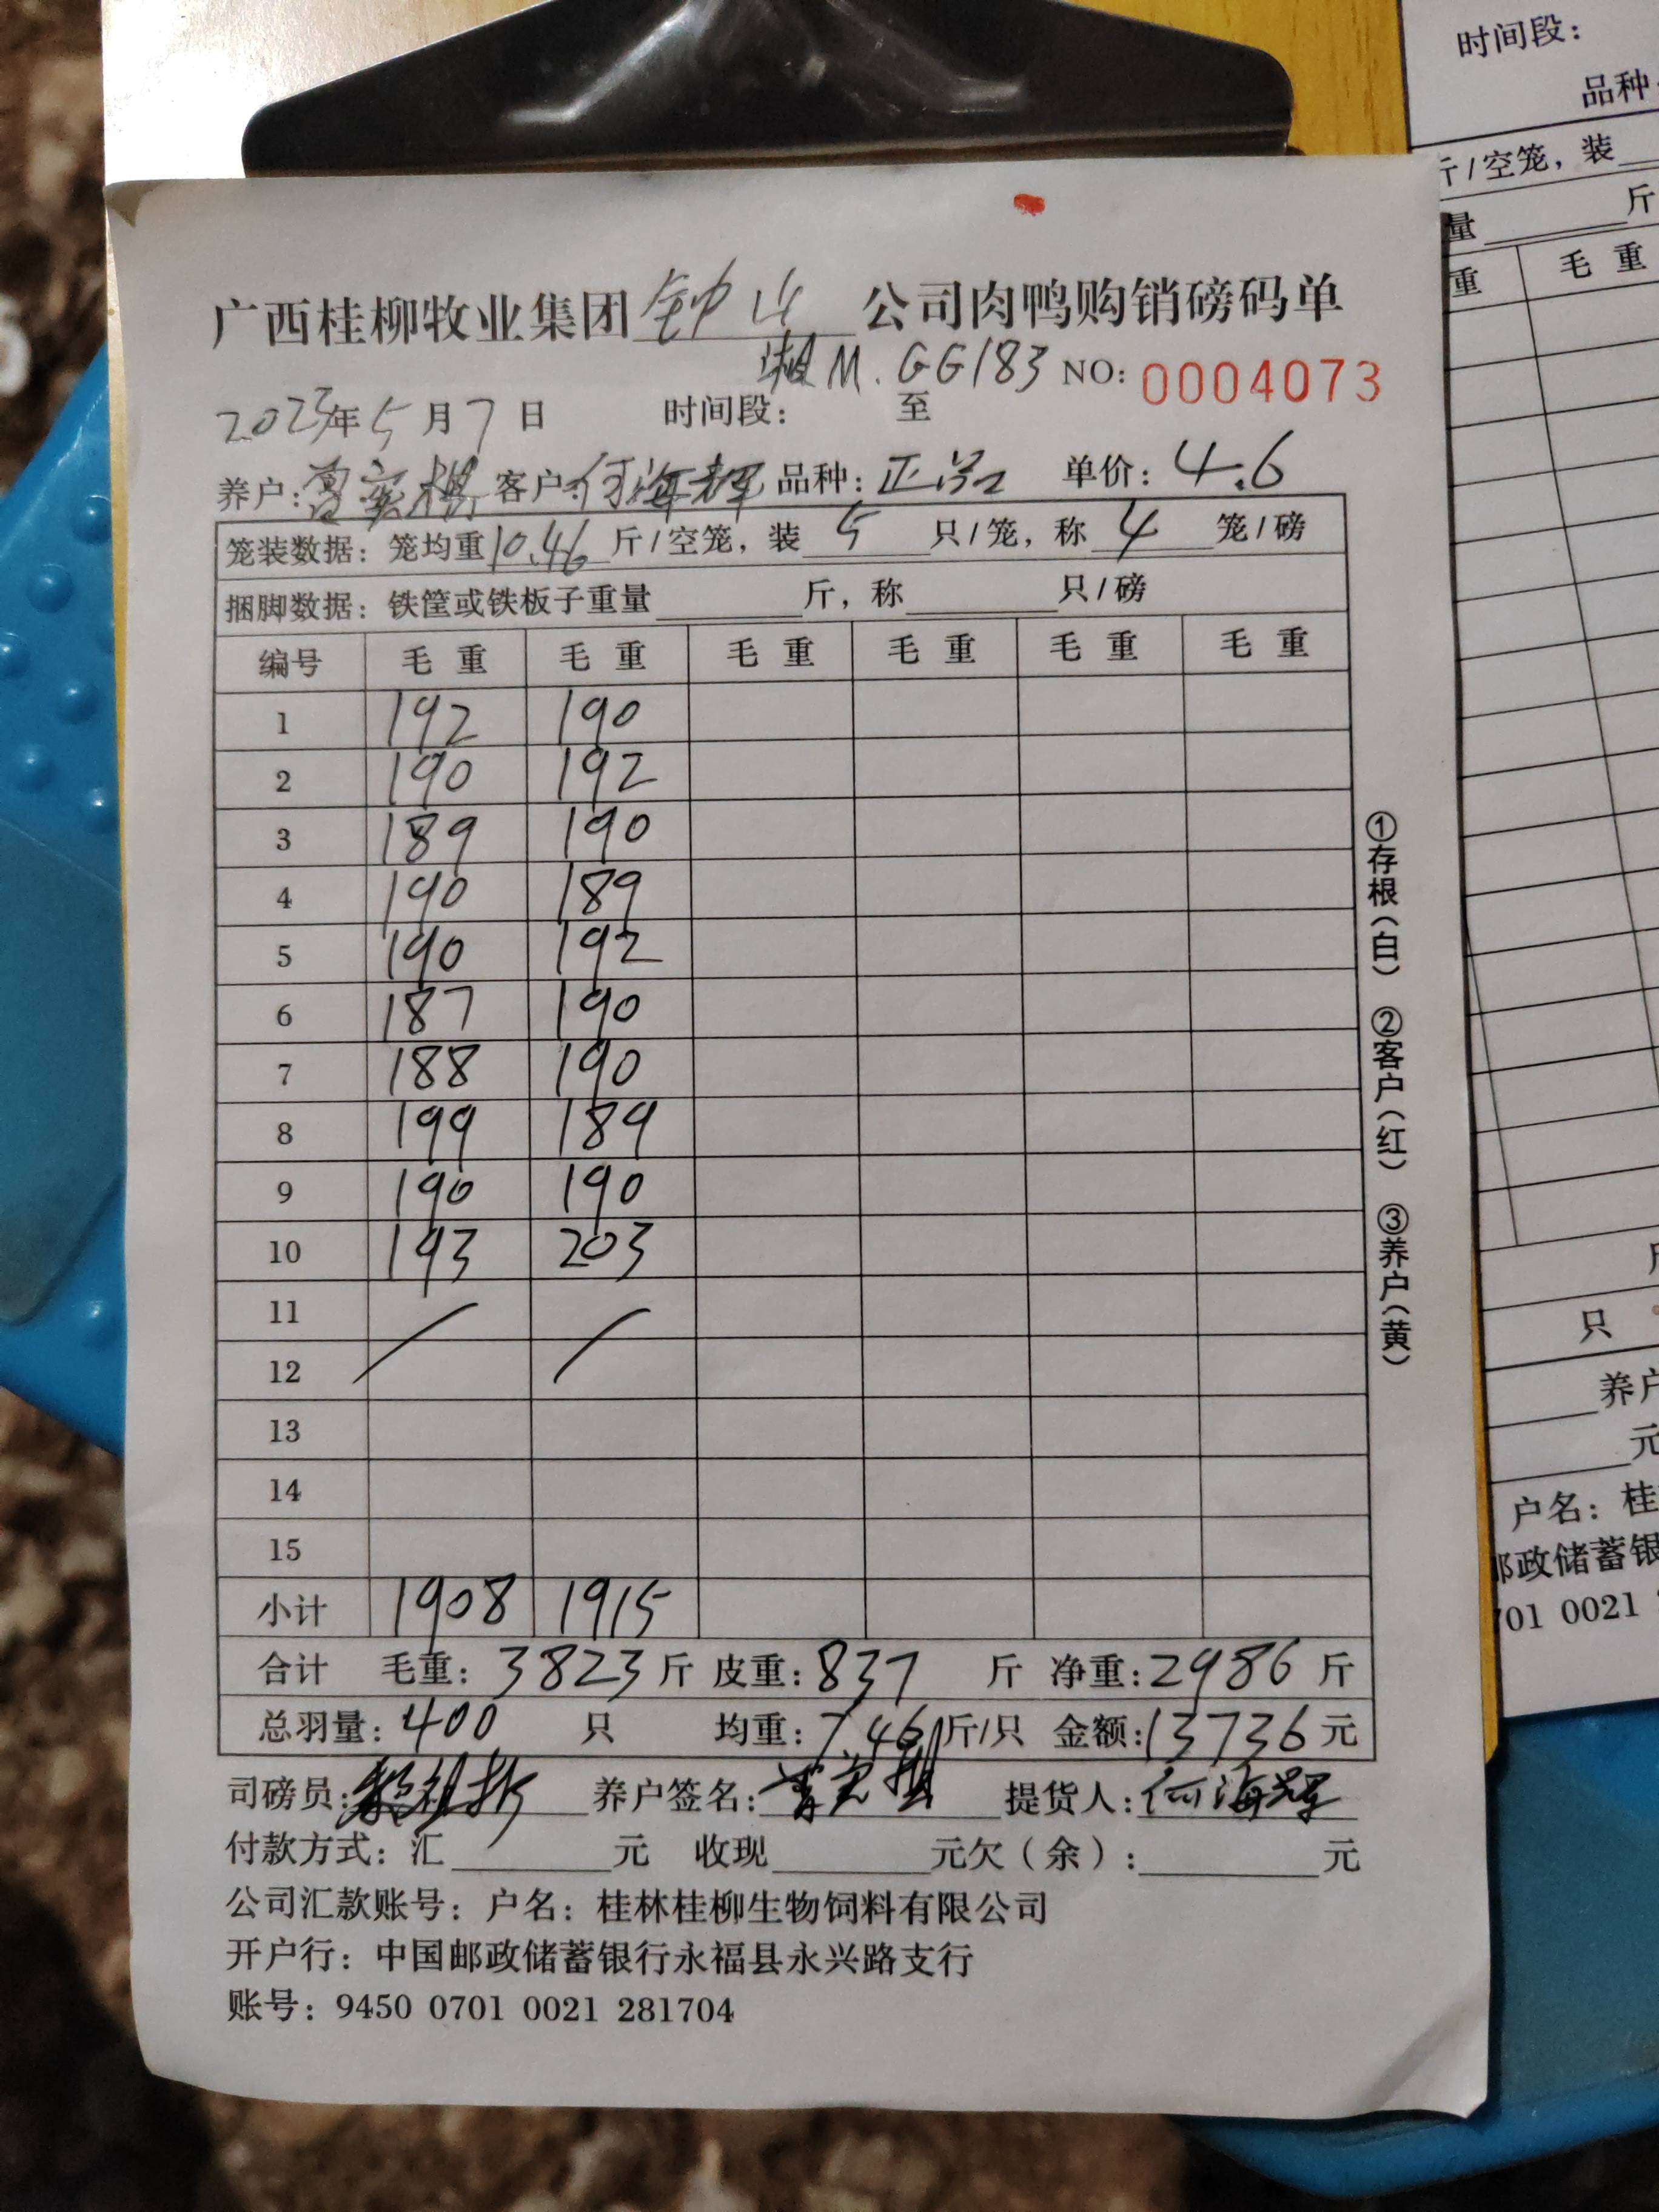 广西桂柳牧业集团钟山公司肉鸭购销磅码单
湘M.GG183 NO: 0004073
2023年5月7日 时间段: 至
养户: 客户:何海辉 品种:正品 单价:4.6
笼装数据:笼均重10.46斤/空笼,装5只/笼,称4笼/磅
捆脚数据:铁筐或铁板子重量 斤,称 只/磅
编号 毛重 毛重 毛重 毛重 毛重 毛重
1 192 190
2 190 192
3 189 190
4 190 189
5 190 192
6 187 190
7 188 190
8 199 189
9 190 190
10 193 203
11
12
13
14
15
小计 1908 1915
合计 毛重:3823斤 皮重:837斤 净重:2986斤
总羽量:400只 均重:7.46斤/只 金额:13736元
司磅员: 养户签名: 提货人:何海辉
付款方式:汇 元 收现 元欠(余): 元
公司汇款账号:户名:桂林桂柳生物饲料有限公司
开户行:中国邮政储蓄银行永福县永兴路支行
账号:9450 0701 0021 281704
①存根(白) ②客户(红) ③养户(黄)
时间段:
品种
斤/空笼,装
量 斤
重 毛重
只
养户
元
户名:桂
邮政储蓄银
701 0021